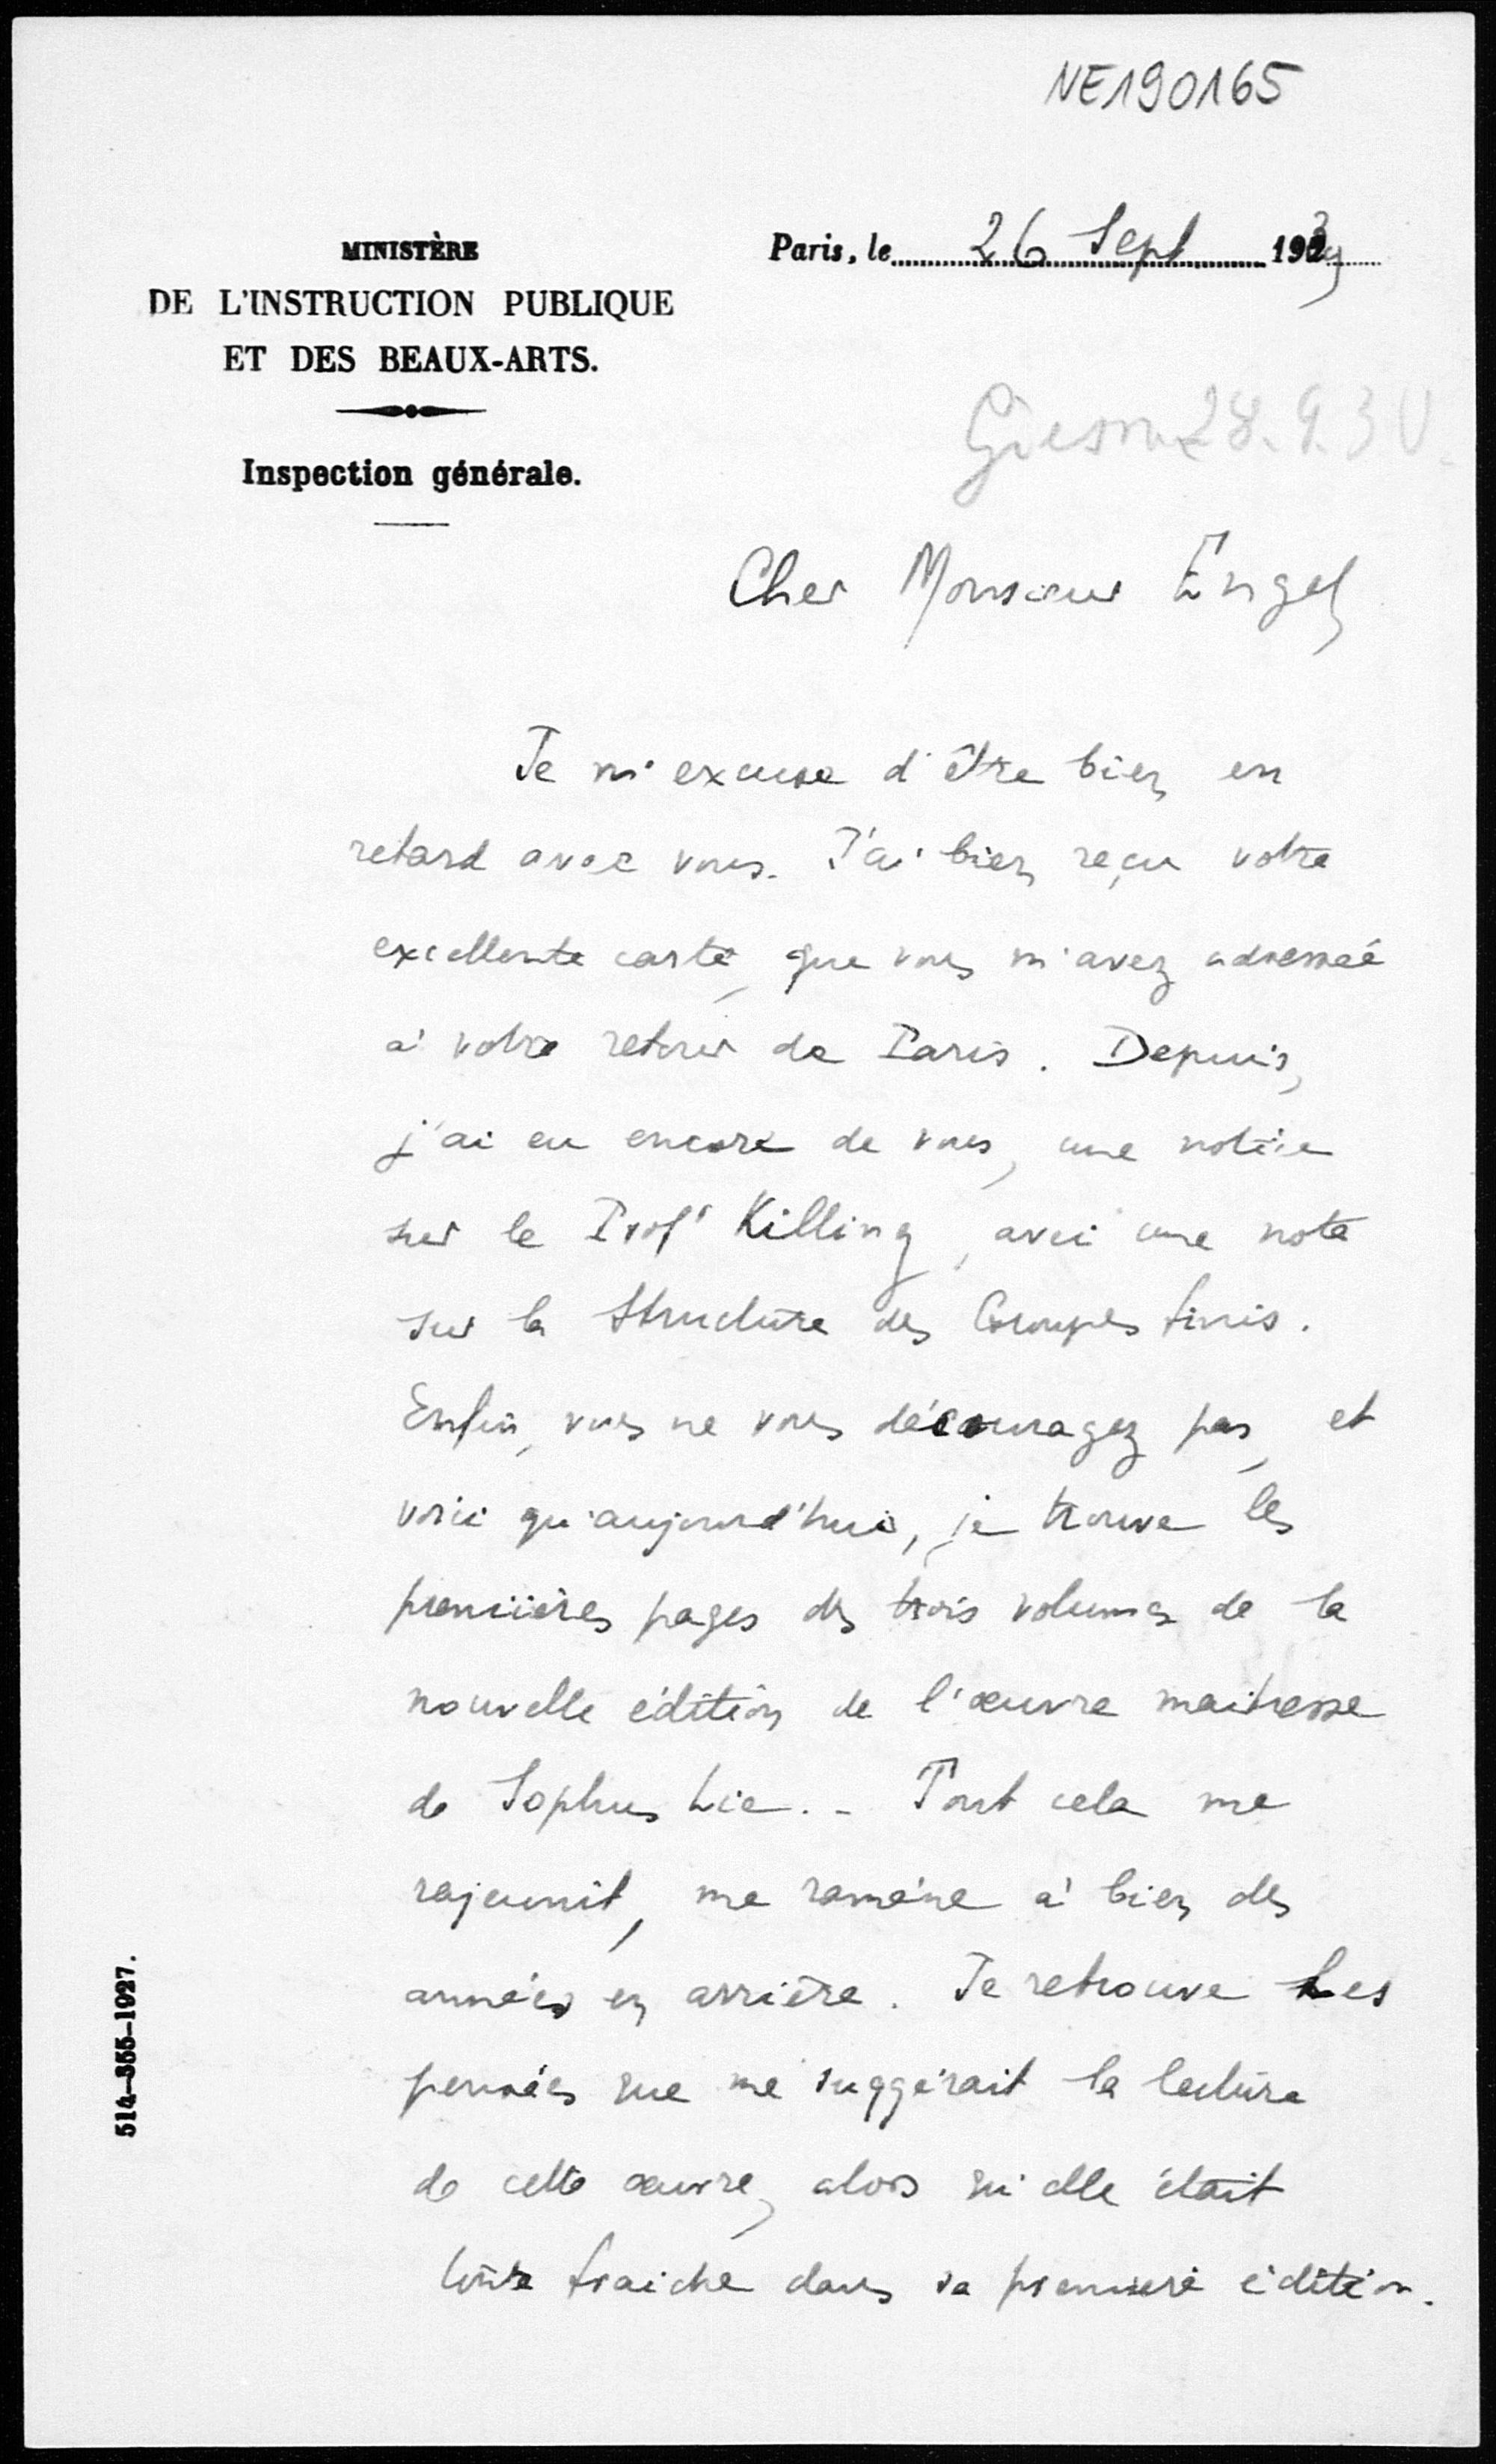 NE190165
MINISTÈRE
DE L'INSTRUCTION PUBLIQUE
ET DES BEAUX-ARTS.
Inspection générale.
Paris, le 26 Sept 193
28.9.30.
Cher Monsieur Engel
Je m'excuse d'être bien en
retard avec vous. J'ai bien reçu votre
excellente carte, que vous m'avez adressée
à votre retour de Paris. Depuis,
j'ai eu encore de vous, une notice
sur le Prof Killing, avec une note
sur la Structure des Groupes finis.
Enfin, vous ne vous découragez pas, et
voici qu'aujourd'hui, je trouve les
premières pages des trois volumes de la
nouvelle édition de l'œuvre maitresse
de Sophus Lie. - Tout cela me
rajeunit, me ramène à bien des
années en arrière. Je retrouve les
pensées que me suggérait la lecture
de cette œuvre, alors qu'elle était
toute fraiche dans sa première édition.
514-355-1927.